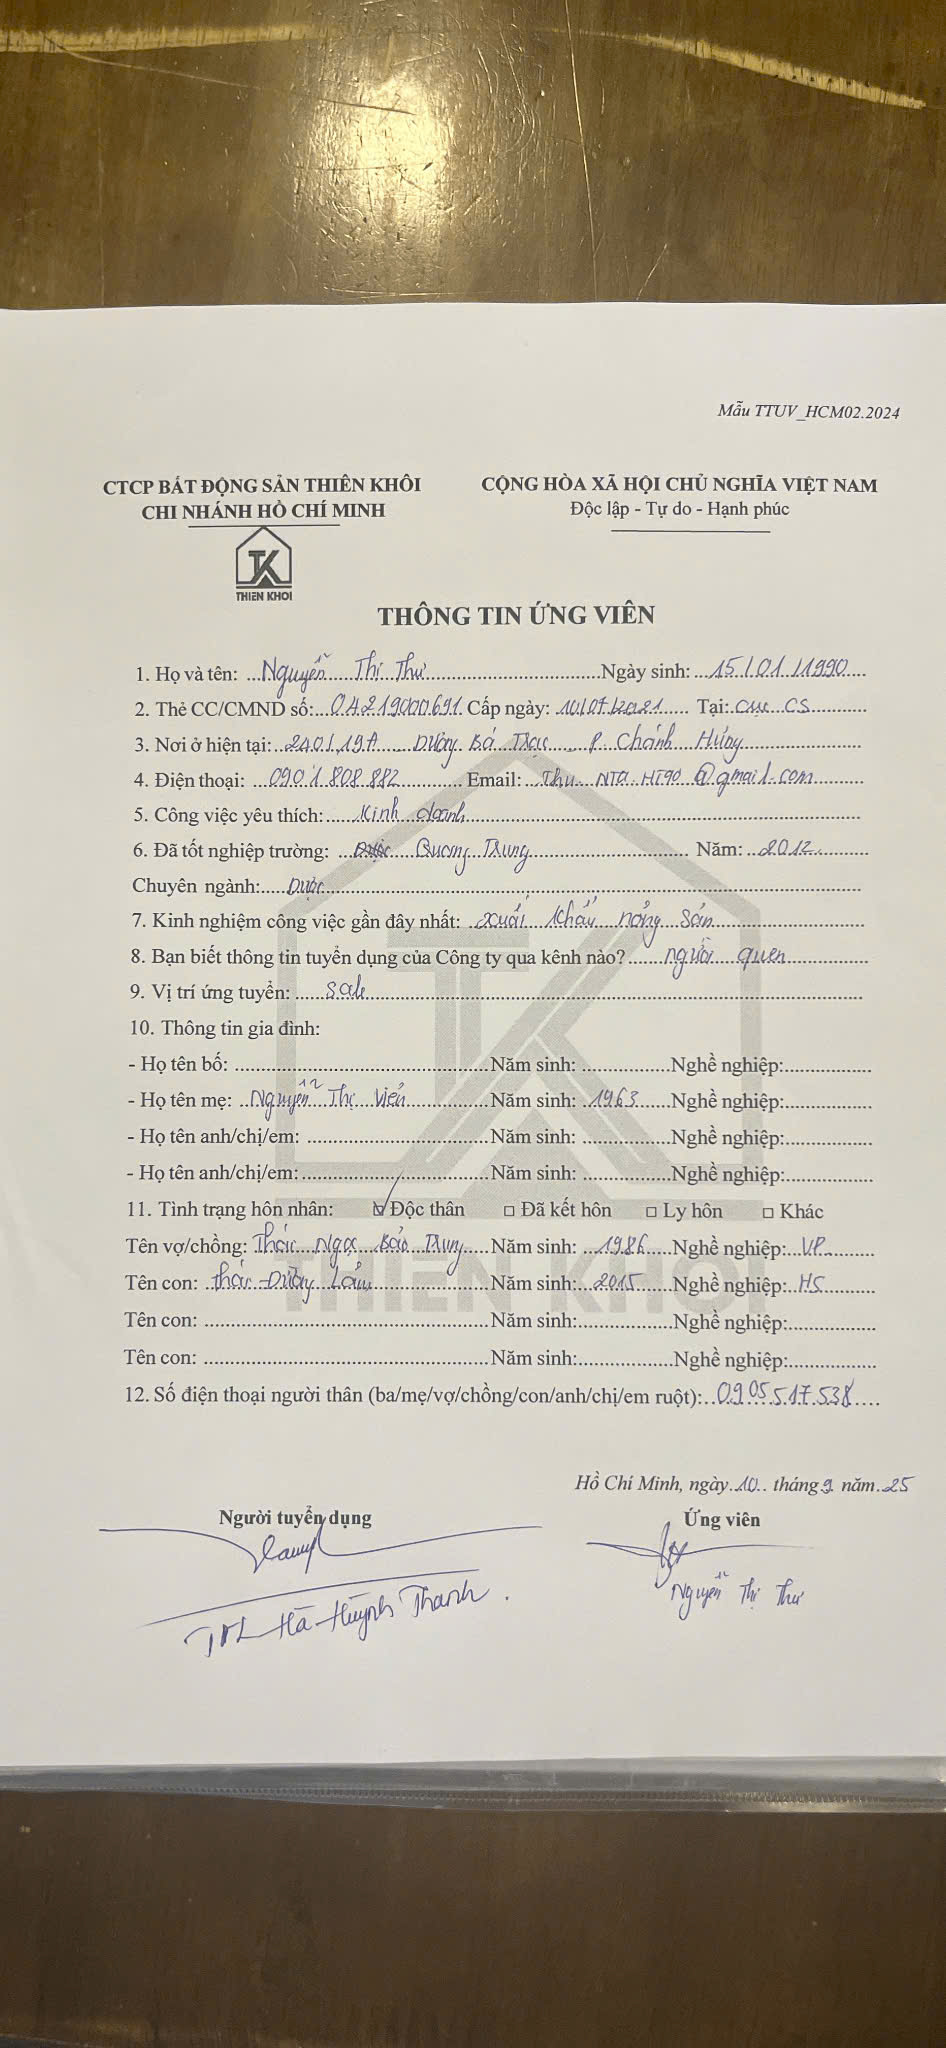 Mẫu TTUV_HCM02.2024
CTCP BẤT ĐỘNG SẢN THIÊN KHÔI
CHI NHÁNH HỒ CHÍ MINH
CỘNG HÒA XÃ HỘI CHỦ NGHĨA VIỆT NAM
Độc lập - Tự do - Hạnh phúc
TK
THIEN KHOI
THÔNG TIN ỨNG VIÊN
1. Họ và tên: Nguyễn Thị Thư Ngày sinh: 15/01/1990
2. Thẻ CC/CMND số: 04219000691 Cấp ngày: 10/07/2021 Tại: cục CS
3. Nơi ở hiện tại: Dương Bá Trạc P. Chánh Hưng
4. Điện thoại: 0901.808.882 Email: Thu.NTA.HT90@gmail.com
5. Công việc yêu thích: Kinh doanh
6. Đã tốt nghiệp trường: Quang Trung Năm: 2012
Chuyên ngành: Dược
7. Kinh nghiệm công việc gần đây nhất: xuất khẩu nông sản
8. Bạn biết thông tin tuyển dụng của Công ty qua kênh nào? người quen
9. Vị trí ứng tuyển: sale
10. Thông tin gia đình:
- Họ tên bố: Năm sinh: Nghề nghiệp:
- Họ tên mẹ: Nguyễn Thị Viên Năm sinh: 1963 Nghề nghiệp:
- Họ tên anh/chị/em: Năm sinh: Nghề nghiệp:
- Họ tên anh/chị/em: Năm sinh: Nghề nghiệp:
11. Tình trạng hôn nhân: ☑ Độc thân □ Đã kết hôn □ Ly hôn □ Khác
Tên vợ/chồng: Thái Ngọc Bảo Trung Năm sinh: 1986 Nghề nghiệp: VP
Tên con: Thái Dương Lâm Năm sinh: 2015 Nghề nghiệp: HS
Tên con: Năm sinh: Nghề nghiệp:
Tên con: Năm sinh: Nghề nghiệp:
12. Số điện thoại người thân (ba/mẹ/vợ/chồng/con/anh/chị/em ruột): 0905.517.538
THIEN KHOI
Hồ Chí Minh, ngày 10 tháng 9 năm 25
Người tuyển dụng
Ứng viên
Nguyễn Thị Thư
Hà Huỳnh Thanh